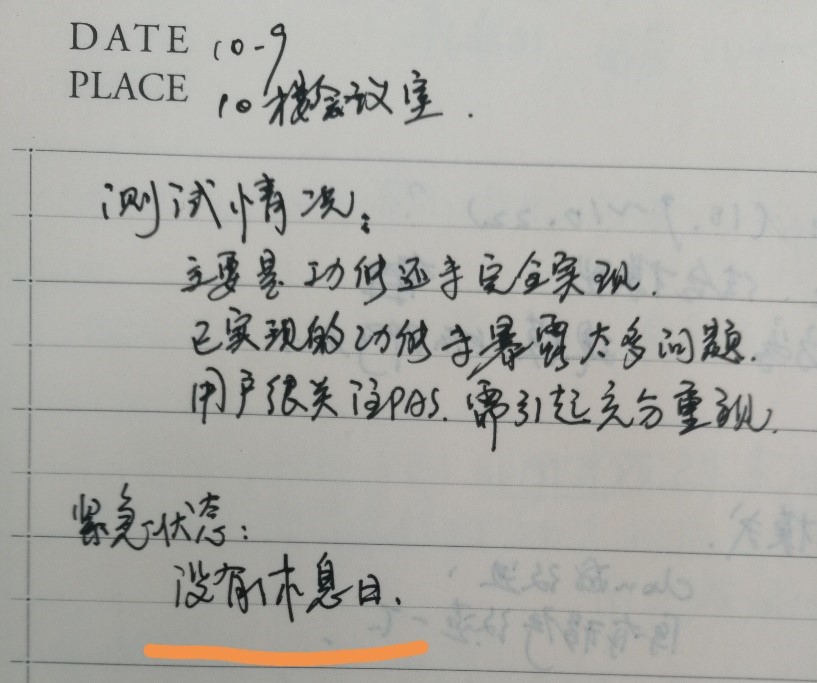 DATE 10-9
PLACE 10楼会议室.
测试情况:
主要是功能还未完全实现.
已实现的功能未暴露太多问题.
用户很关注PAS.需引起充分重视.
紧急状态:
没有休息日.